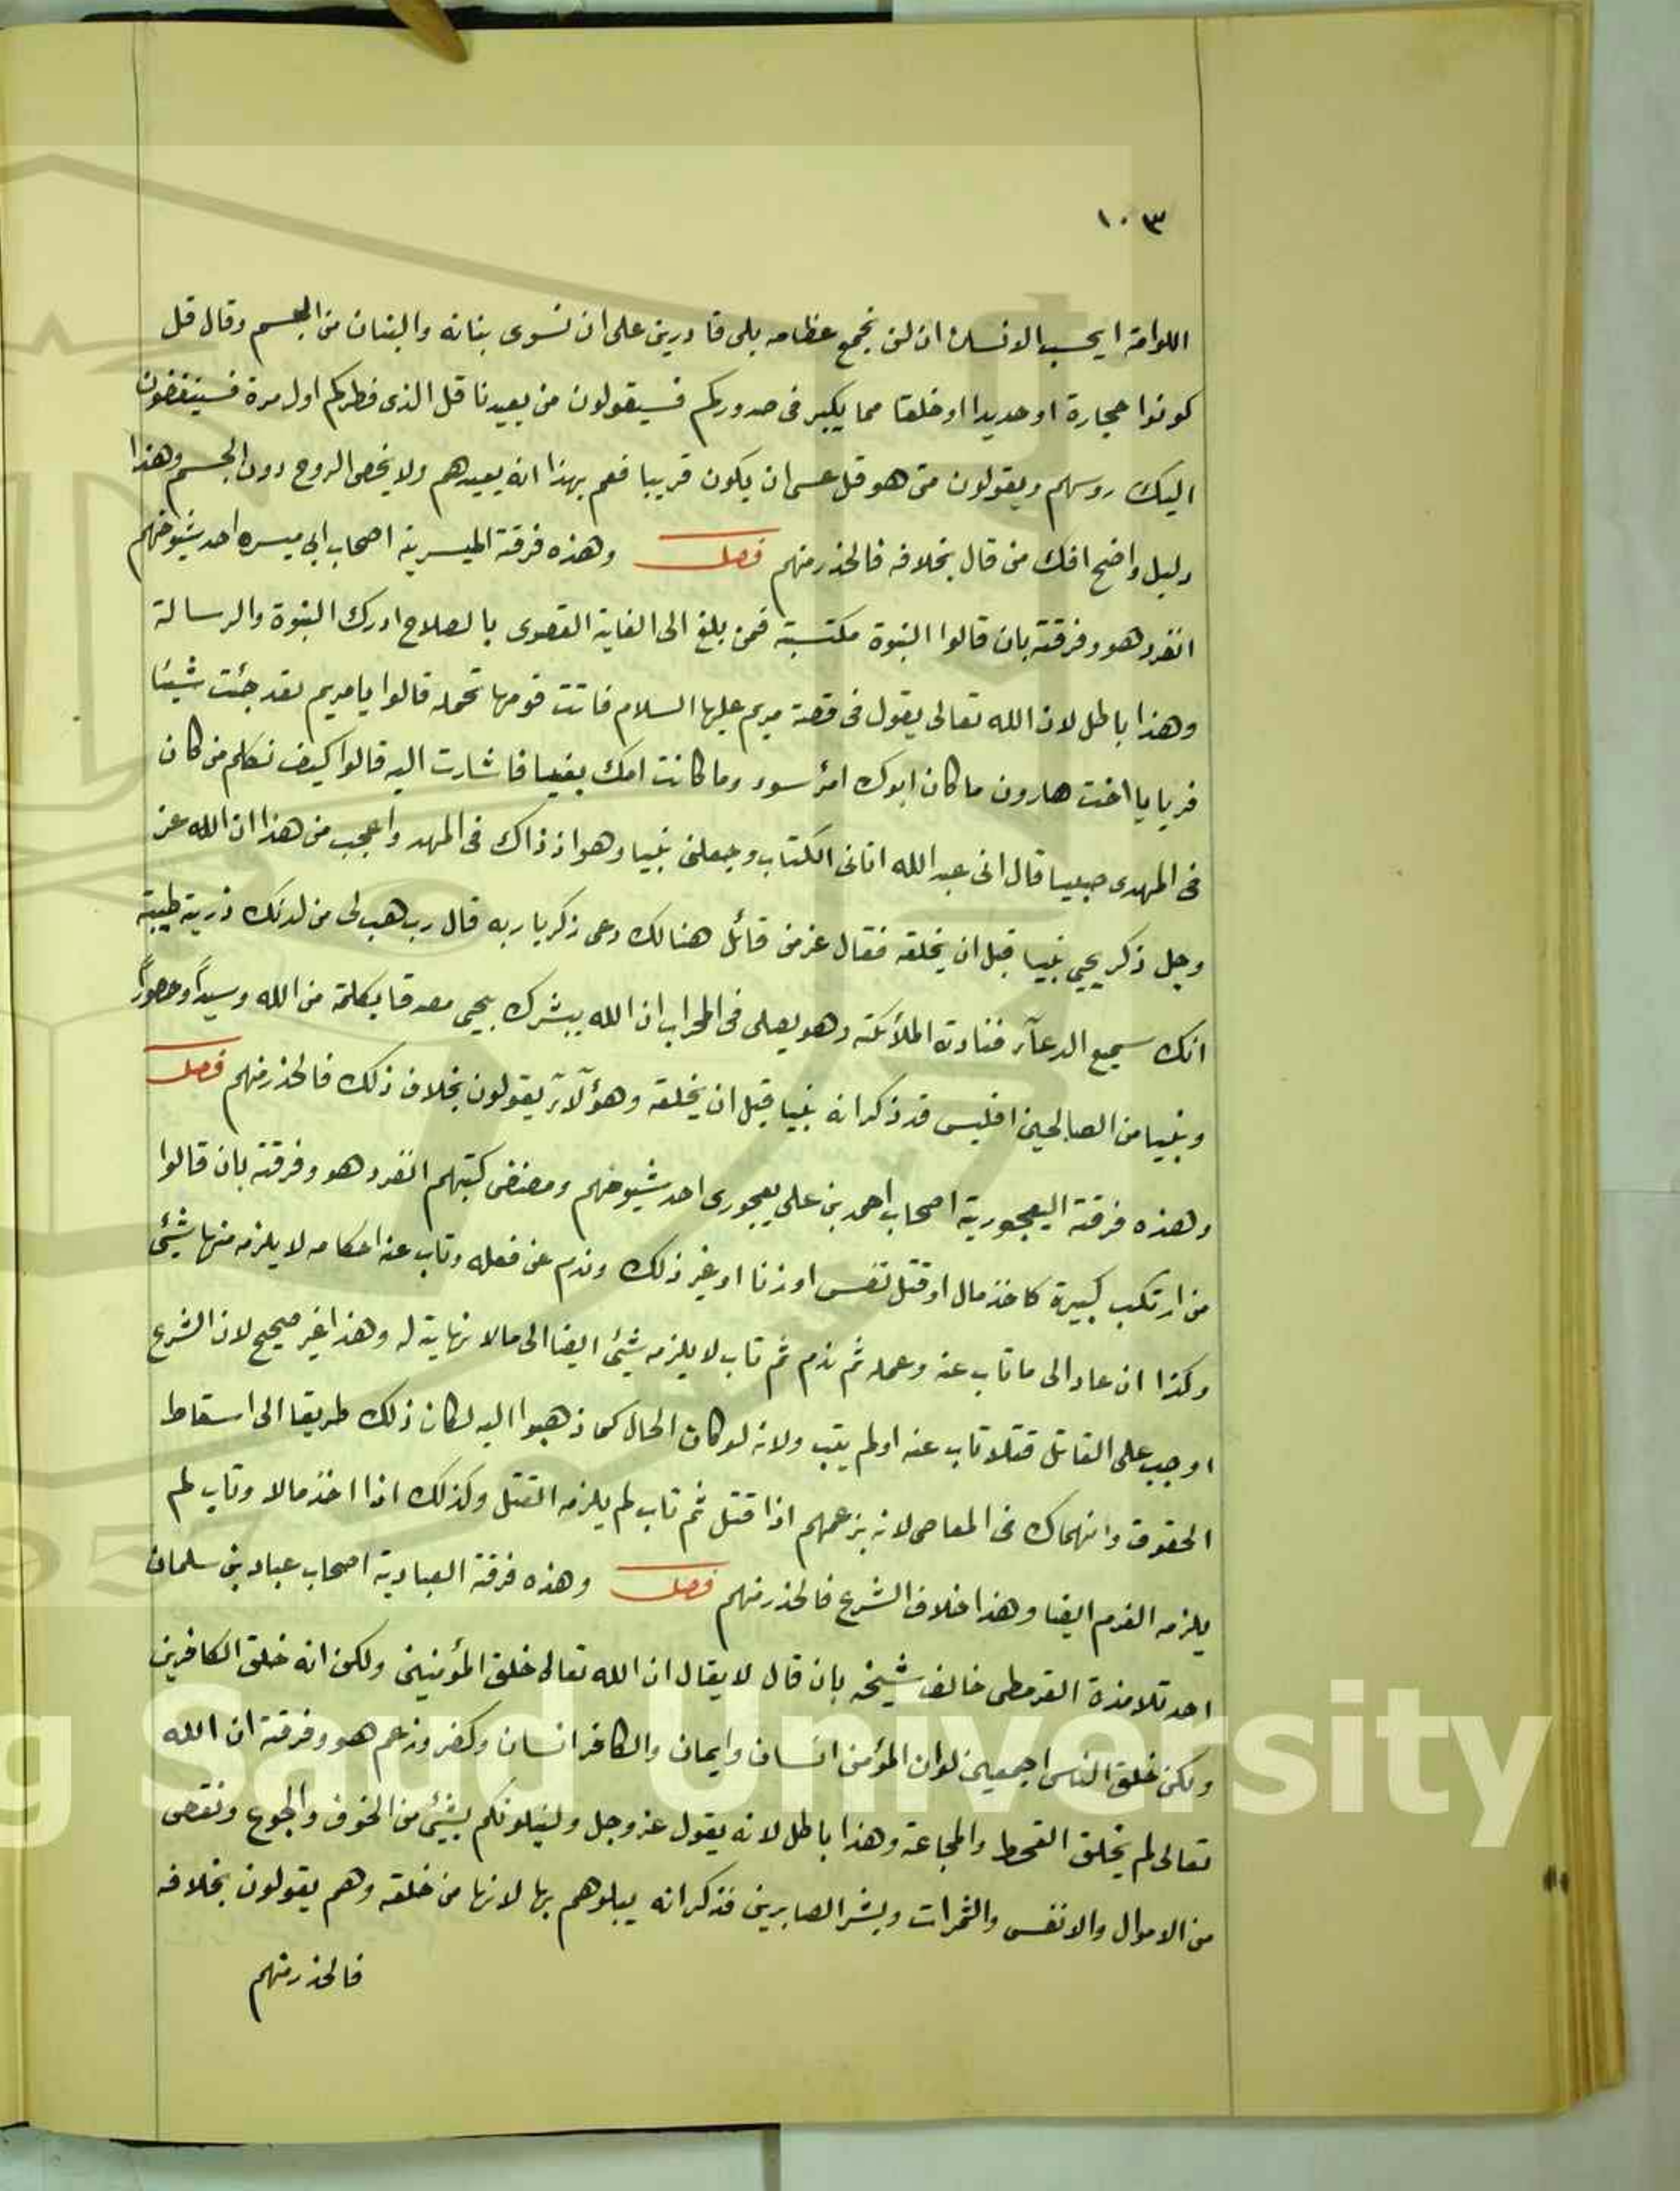 ١٠٣
اللوامة ايحسب الانسان ان لن نجمع عظامه بلى قادرين على ان نسوى بنانه والبنان من الجسم وقال قل
كونوا حجارة او حديدا او خلقا مما يكبر فى صدوركم فسيقولون من يعيدنا قل الذى فطركم اول مرة فسينغضون
اليك روسهم ويقولون متى هو قل عسى ان يكون قريبا فعم بهذا انه يعيدهم ولا يخص الروح دون الجسم وهذا
دليل واضح افك من قال بخلافه فالحذر منهم فصل وهذه فرقة الميسرية اصحاب ابي ميسره احد شيوخهم
انفرد هو وفرقته بان قالوا النبوة مكتسبة فمن بلغ الى الغاية القصوى بالصلاح ادرك النبوة والرسالة
وهذا باطل لان الله تعالى يقول فى قصة مريم عليها السلام فاتت قومها تحمله قالوا يا مريم لقد جئت شيئا
فريا يا اخت هارون ما كان ابوك امرأ سوء وما كانت امك بغيا فاشارت اليه قالوا كيف نكلم من كان
فى المهدى صبيا قال انى عبد الله اتانى الكتاب وجعلنى نبيا وهو اذ ذاك فى المهد واعجب من هذا ان الله عز
وجل ذكر يحيى نبيا قبل ان يخلقه فقال عز من قائل هنالك دعى زكريا ربه قال رب هب لى من لدنك ذرية طيبة
انك سميع الدعآء فنادته الملائكة وهو يصلى فى المحراب ان الله يبشرك بيحيى مصدقا بكلمة من الله وسيدًا وحصورًا
ونبيا من الصالحين افليس قد ذكر انه نبيا قبل ان يخلقه وهؤلآء يقولون بخلاف ذلك فالحذر منهم فصل
وهذه فرقة اليعجورية اصحاب احمد بن على يعجورى احد شيوخهم ومصنفى كتبهم انفرد هو وفرقته بان قالوا
من ارتكب كبيرة كاخذ مال او قتل نفس او زنا او غير ذلك وندم عن فعله وتاب عنه احكامه لا يلزمه منها شيئ
وكذا ان عاد الى ما تاب عنه وعمله ثم ندم ثم تاب لا يلزمه شيئ ايضا الى مالا نهاية له وهذا غير صحيح لان الشرع
اوجب على القاتل قتلا تاب عنه اولم يتب ولانه لو كان الحال كما ذهبوا اليه لكان ذلك طريقا الى اسقاط
الحقوق وانهماك فى المعاصى لانه بزعمهم اذا قتل ثم تاب لم يلزمه القتل وكذلك اذا اخذ مالا وتاب لم
يلزمه الغرم ايضا وهذا خلاف الشرع فالحذر منهم فصل وهذه فرقة العبادية اصحاب عباد بن سلمان
احد تلامذة القرمطى خالف شيخه بان قال لا يقال ان الله تعالى خلق المؤمنين ولكن انه خلق الكافرين
ولكن خلق الناس اجمعين لوان المؤمن انسان وايمان والكافر انسان وكفر وزعم هو وفرقته ان الله
تعالى لم يخلق القحط والمجاعة وهذا باطل لانه يقول عز وجل ولنبلونكم بشيئ من الخوف والجوع ونقص
من الاموال والانفس والثمرات وبشر الصابرين فذكر انه يبلوهم بها لانها من خلقه وهم يقولون بخلافه
فالحذر منهم
g Saud University